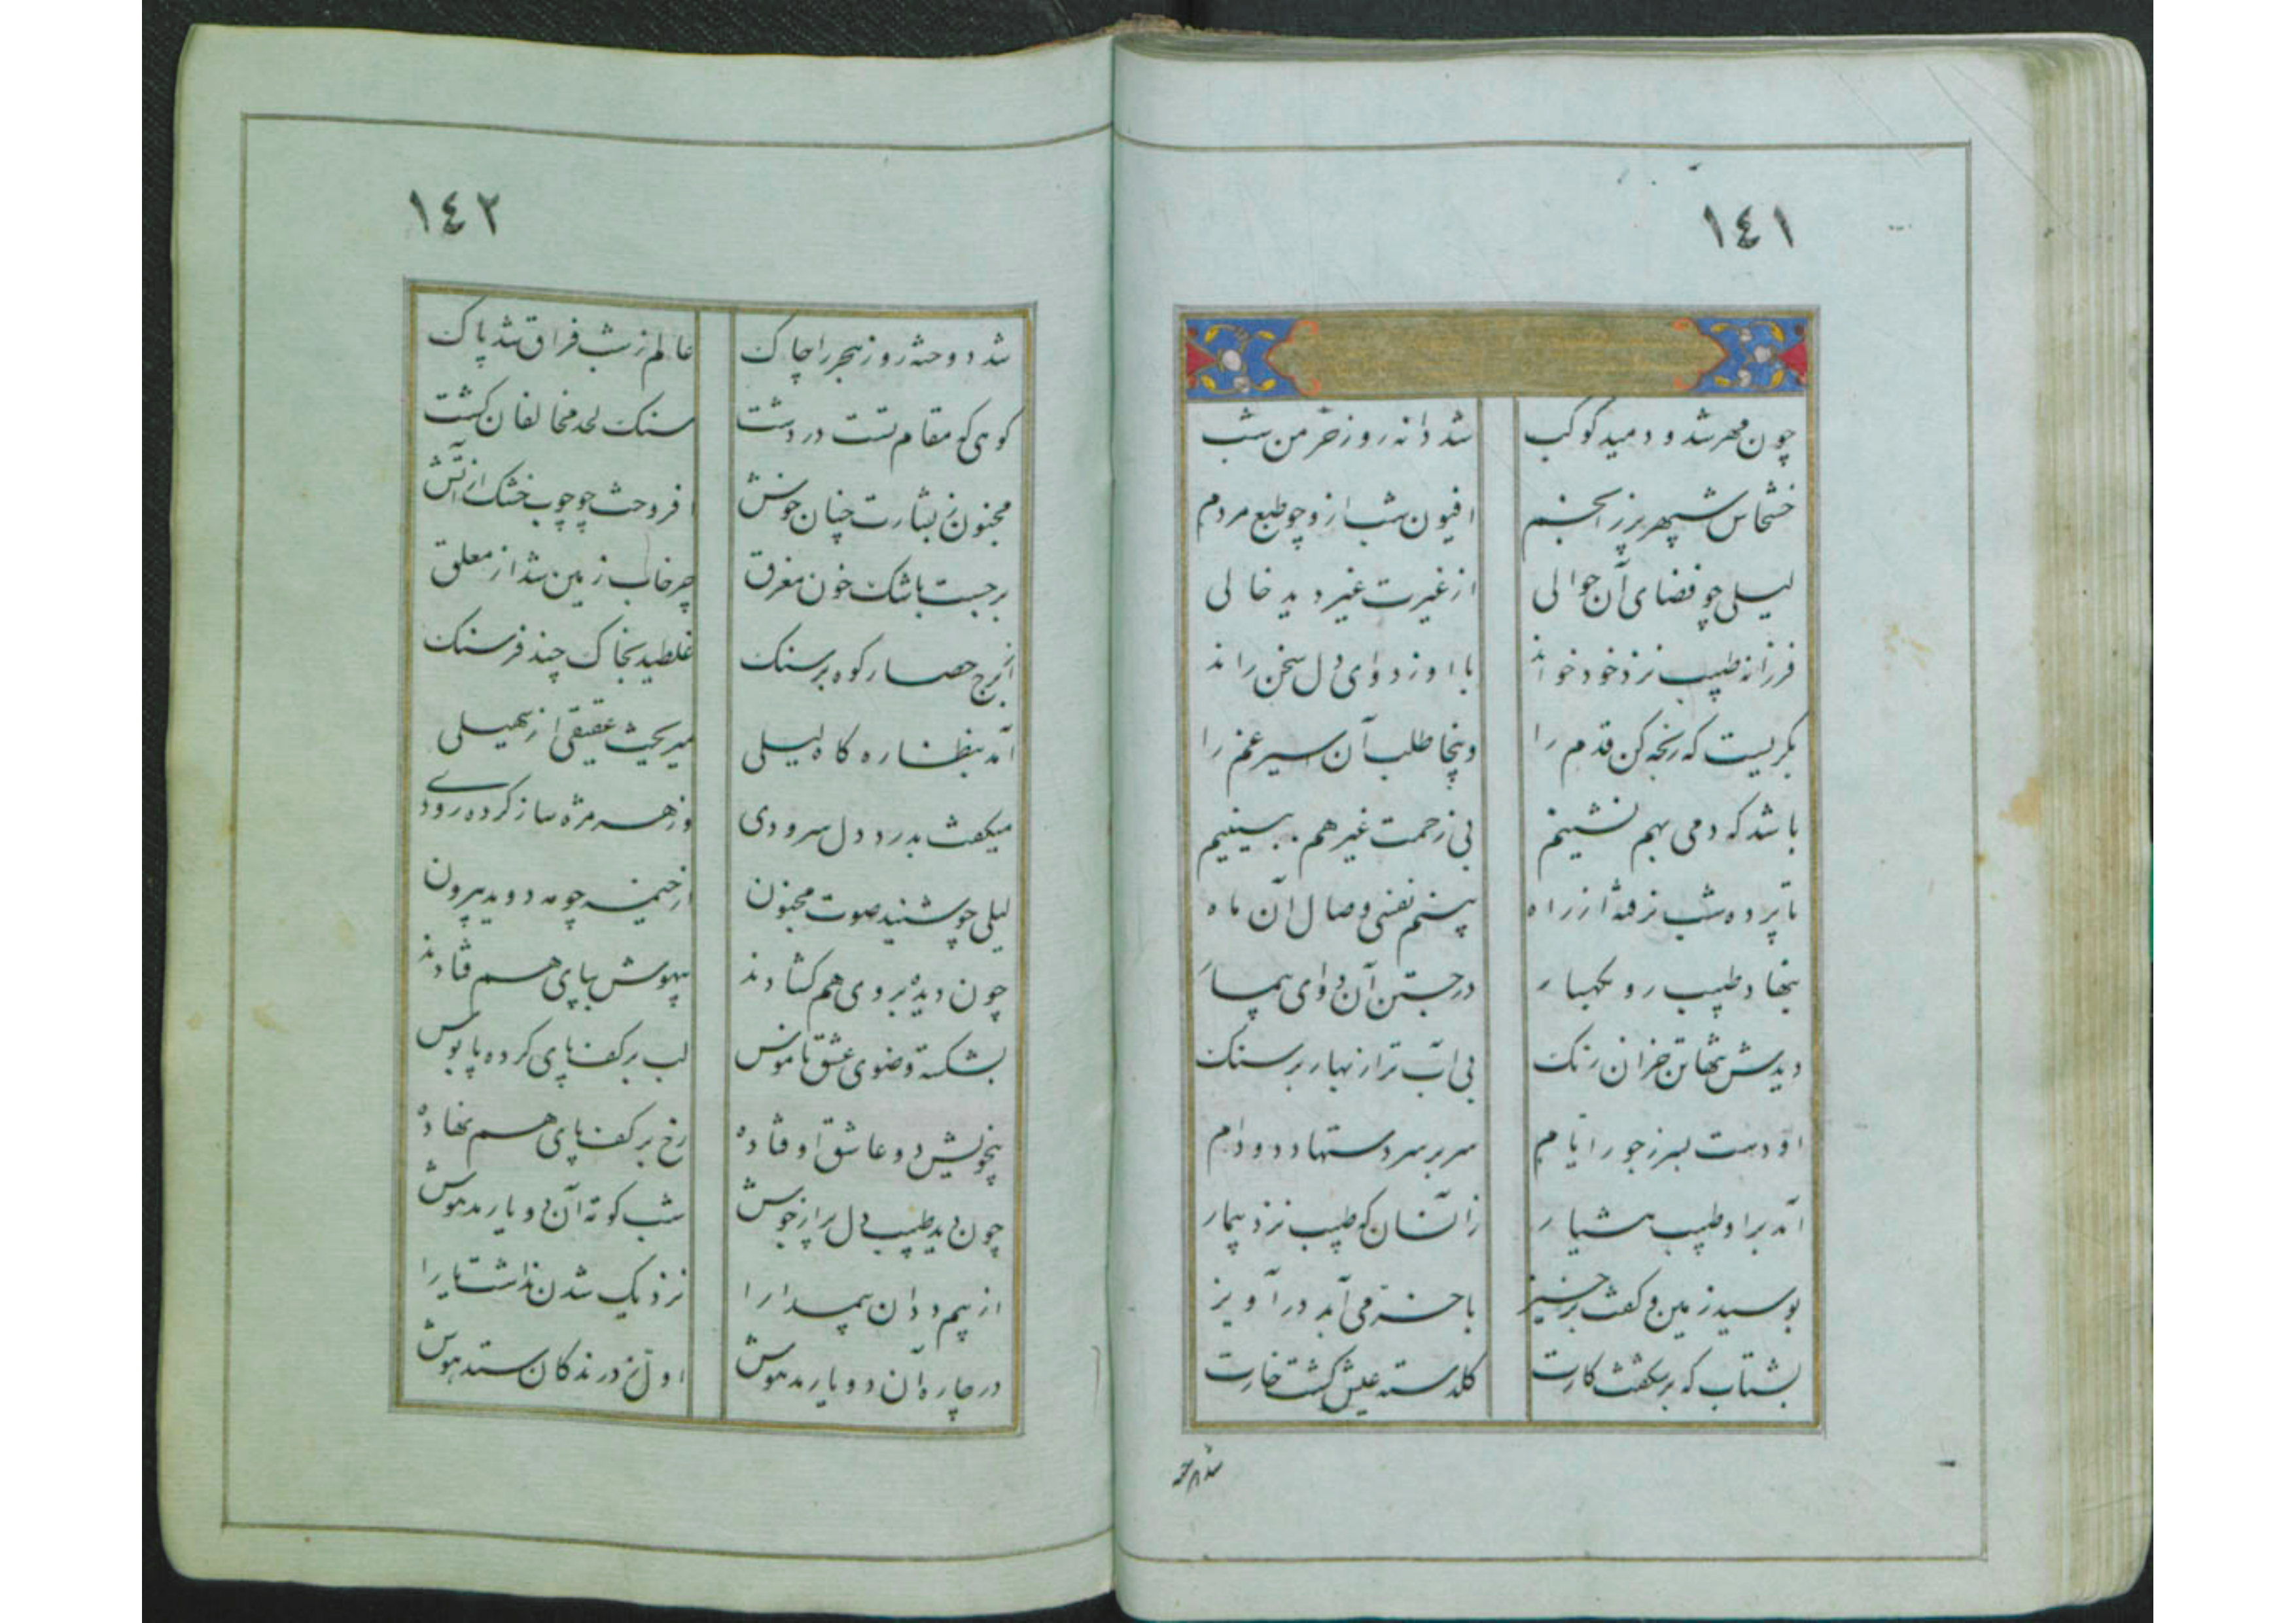 ١٤١
چون مهر شد و دمید کوکب شد دانه روز خرمن شب
خشخاش سپهر پر ز انجم افیون شب از و چو طبع مردم
لیلی چو فضای آن حوالی از غیرت غیر دید خالی
فرزانه طبیب نزد خود خواند با او ز دوای دل سخن راند
بگریست که رنجه کن قدم را وینجا طلب آن اسیر غم را
باشد که دمی بهم نشینیم بی زحمت غیر هم ببینیم
تا پرده شب نرفته از راه بینم نفسی وصال آن ماه
بنهاد طبیب رو بکهسار در جستن آن دوای بیمار
دیدش تنها تن خزان رنک بی آب تر از بهار بر سنک
او دست بسر ز جور ایام سر بر سر دستها دد و دام
آمد بر او طبیب هشیار زآنسان که طبیب نزد بیمار
بوسید زمین و کفت برخیز با می آید درآویز
بشتاب که بشکفت کارت کلدسته عیش کشت خارت
شد دوخته
١٤٢
شد دوخته روز هجر را چاک عالم ز شب فراق شد پاک
کوهی که مقام تست در دشت سنک لحد مخالفان کشت
مجنون ز بشارت چنان خوش افروخت چو چوب خشک از آتش
برجست باشک خون مغرق چرخاب زمین شد از معلق
از برج حصار کوه بر سنک غلطید بخاک چند فرسنک
آمد بنظاره کاه لیلی میریخت عقیقی از سهیلی
میکفت بدرد دل سرودی وز هر مژه ساز کرده رودی
لیلی چو شنید صوت مجنون از خیمه چو مه دوید بیرون
چون دیده بروی هم کشادند بیهوش بپای هم فتادند
بشکسته وضوی عشق ناموس لب بر کف پای کرده پابوس
بیخویش دو عاشق اوفتاده رخ بر کف پای هم نهاده
چون دید طبیب دل پر از جوش شب کوته آن دو یار مدهوش
از بیم ددان نزدیک شدن نداشت یارا
در چاره آن دو یار مدهوش اول درندکان ستد هوش